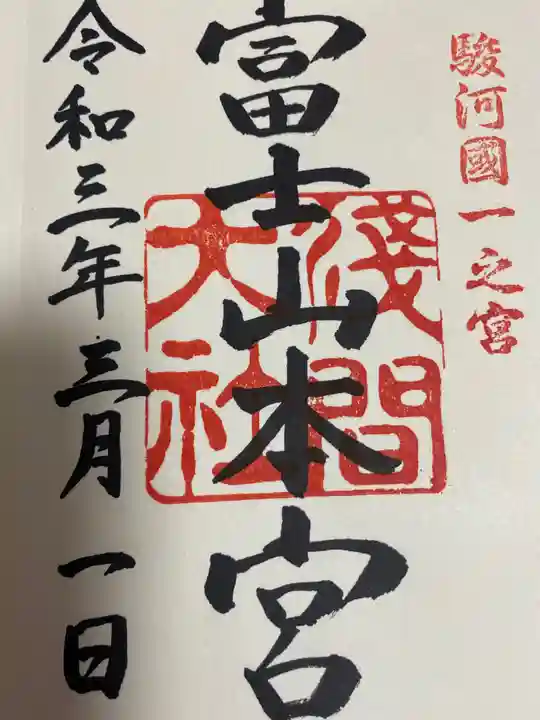 駿河國一之宮
富士山本宮
淺間
大社
令和三年三月一日